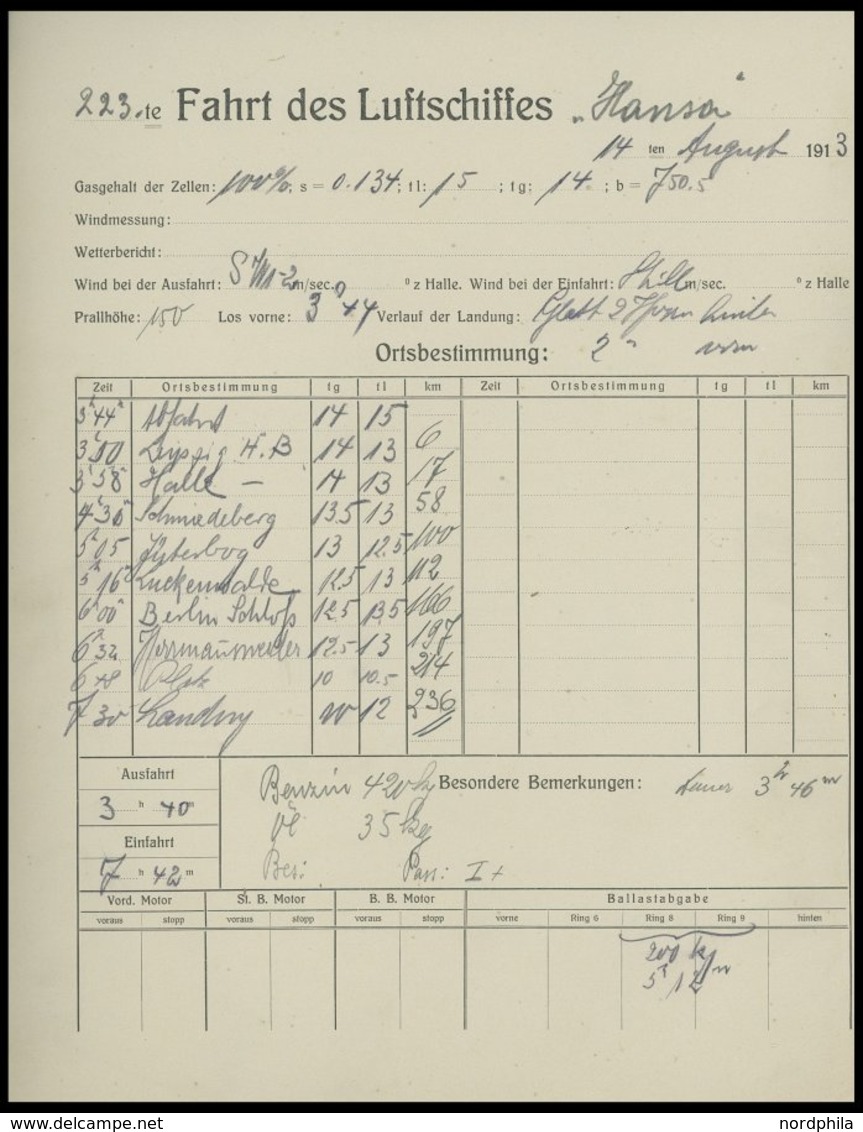 223.te Fahrt des Luftschiffes „Hansa“
14 ten August 1913
Gasgehalt der Zellen: 100%; s = 0.134; tl: 15 ; tg: 14 ; b = 750.5
Windmessung:
Wetterbericht:
Wind bei der Ausfahrt: m/sec. ° z Halle. Wind bei der Einfahrt: Still m/sec. ° z Halle
Prallhöhe: 150 Los vorne: 3 44 Verlauf der Landung: Glatt 2
Ortsbestimmung: 2 " vorn
Zeit Ortsbestimmung tg tl km Zeit Ortsbestimmung tg tl km
3 44 Abfahrt 14 15
3 50 Leipzig H. B 14 13 6
3 58 Halle — 14 13 17
4 36 Schmiedeberg 13.5 13 58
5 05 Jüterbog 13 12.5 100
5 16 Luckenwalde 12.5 13 112
6 00 Berlin Schloß 12.5 13.5 166
6 32 12.5 13 197
6 48 Platz 10 10.5 214
7 30 Landung 10 12 236
Ausfahrt
3 h 40 m
Einfahrt
7 h 42 m
Benzin 420 kg Besondere Bemerkungen: Dauer 3 h 46 m
Öl 35 kg
Bes: Pass: I +
Vord. Motor St. B. Motor B. B. Motor Ballastabgabe
voraus stopp voraus stopp voraus stopp vorne Ring 6 Ring 8 Ring 9 hinten
200 kg
5 h 12 m
delcampe.net
nordphila